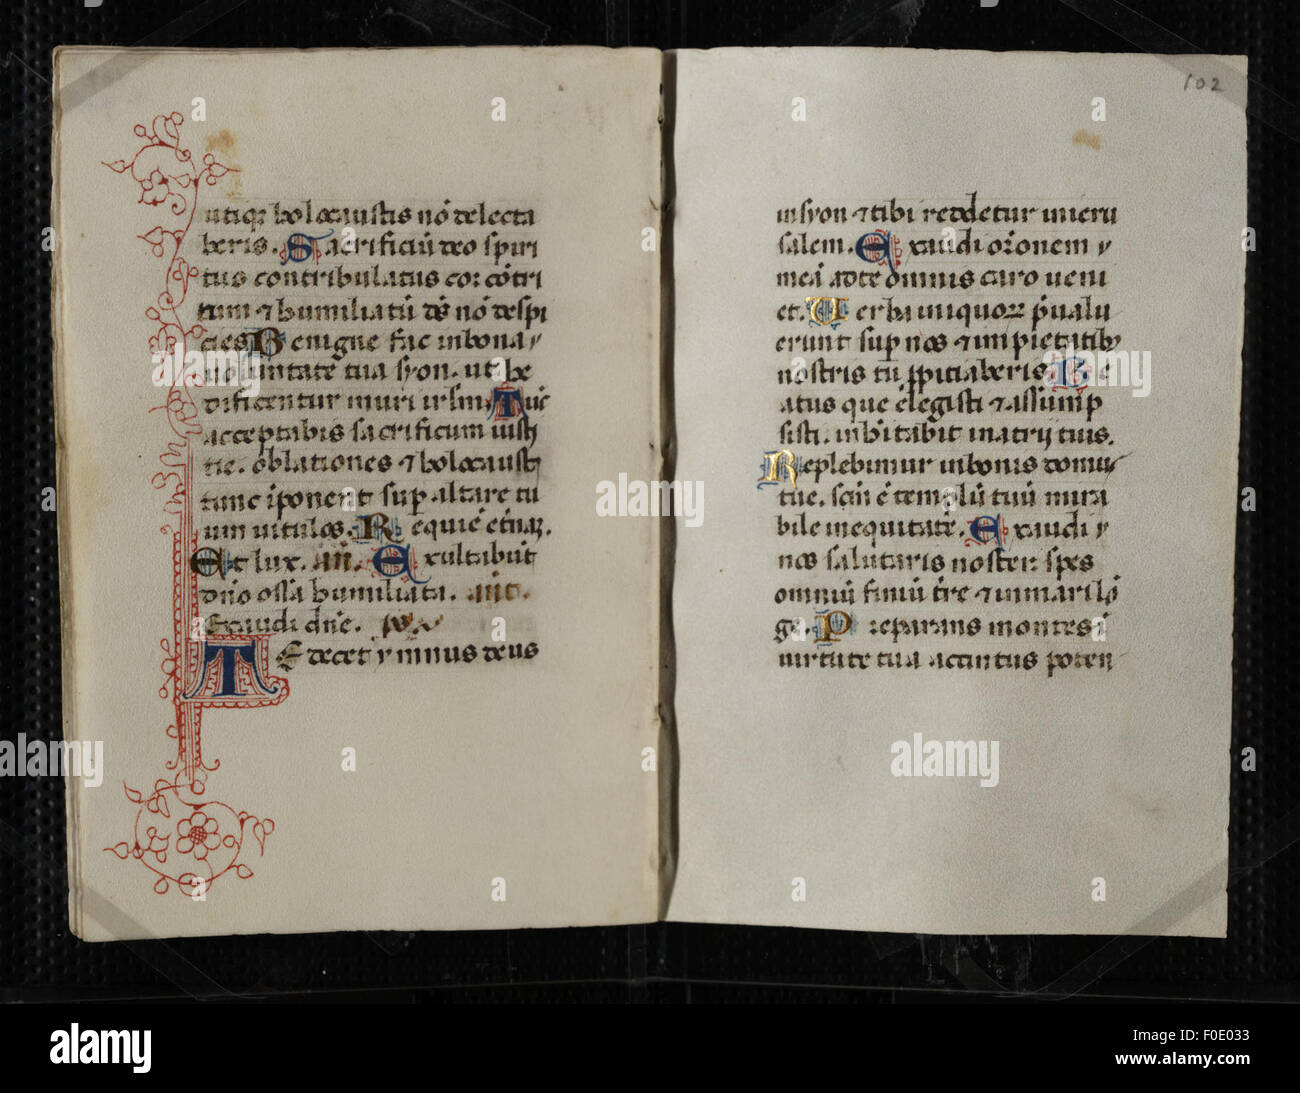 utiq; holocaustis nō delecta
beris. Sacrificiū deo spiri
tus contribulatus cor cōtri
tum & humiliatū ds̄ nō despi
cies Benigne fac in bona
uoluntate tua syon. ut he
dificentur muri irlm̄. Tūc
acceptabis sacrificium iusti
tie. oblationes & holocausti
tunc īponent sup altare tu
um uitulos. Requiē etnaȝ.
Et lux. añ. Exultabūt
dño ossa humiliata. añt.
Exaudi dñe. ps
Te decet ymnus deus
102
in syon & tibi reddetur in ieru
salem. Exaudi orōnem
meā ad te omnis caro ueni
et. Uerba iniquorꝝ p̄ualu
erunt sup nos & impietatib;
nostris tu ꝓpitiaberis. Be
atus que elegisti & assump
sisti. inhītabit in atrijs tuis.
Replebimur in bonis domus
tue. scm̄ ē templū tuū mira
bile in equitate. Exaudi
nos salutaris noster spes
omniū finiū tr̄e & in mari lō
ge. Preparans montes ī
uirtute tua accintus poten
alamy
Image ID: F0E033
www.alamy.com